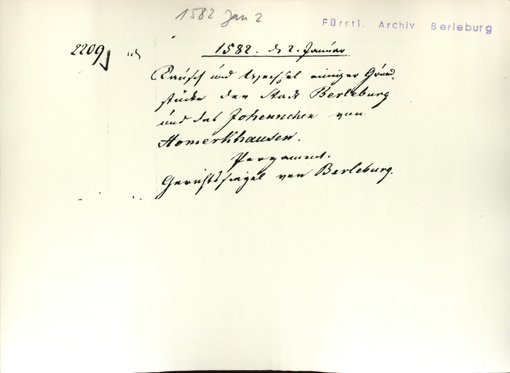 1582 Jan 2
Fürstl. Archiv Berleburg
2209
1582. d. 2. Januar
Tausch und Wechsel einiger Grund
stücke der Stadt Berleburg
und des Johennchen von
Homerkhausen.
Pergament.
Gerichtssiegel von Berleburg.